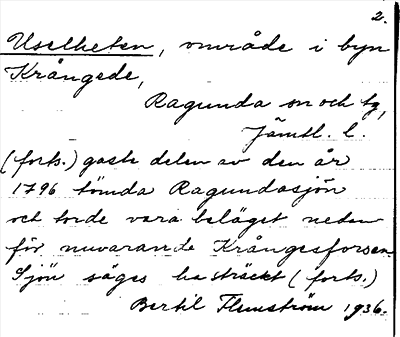 2.
Uselheten, område i byn
Krångede,
Ragunda sn och tg,
Jämtl. l.
(forts.) gaste delen av den år
1796 tömda Ragundasjön
och torde vara beläget nedan
för nuvarande Krångesforsen
Sjön säges ha sträckt (forts.)
Bertil Flemström 1936.